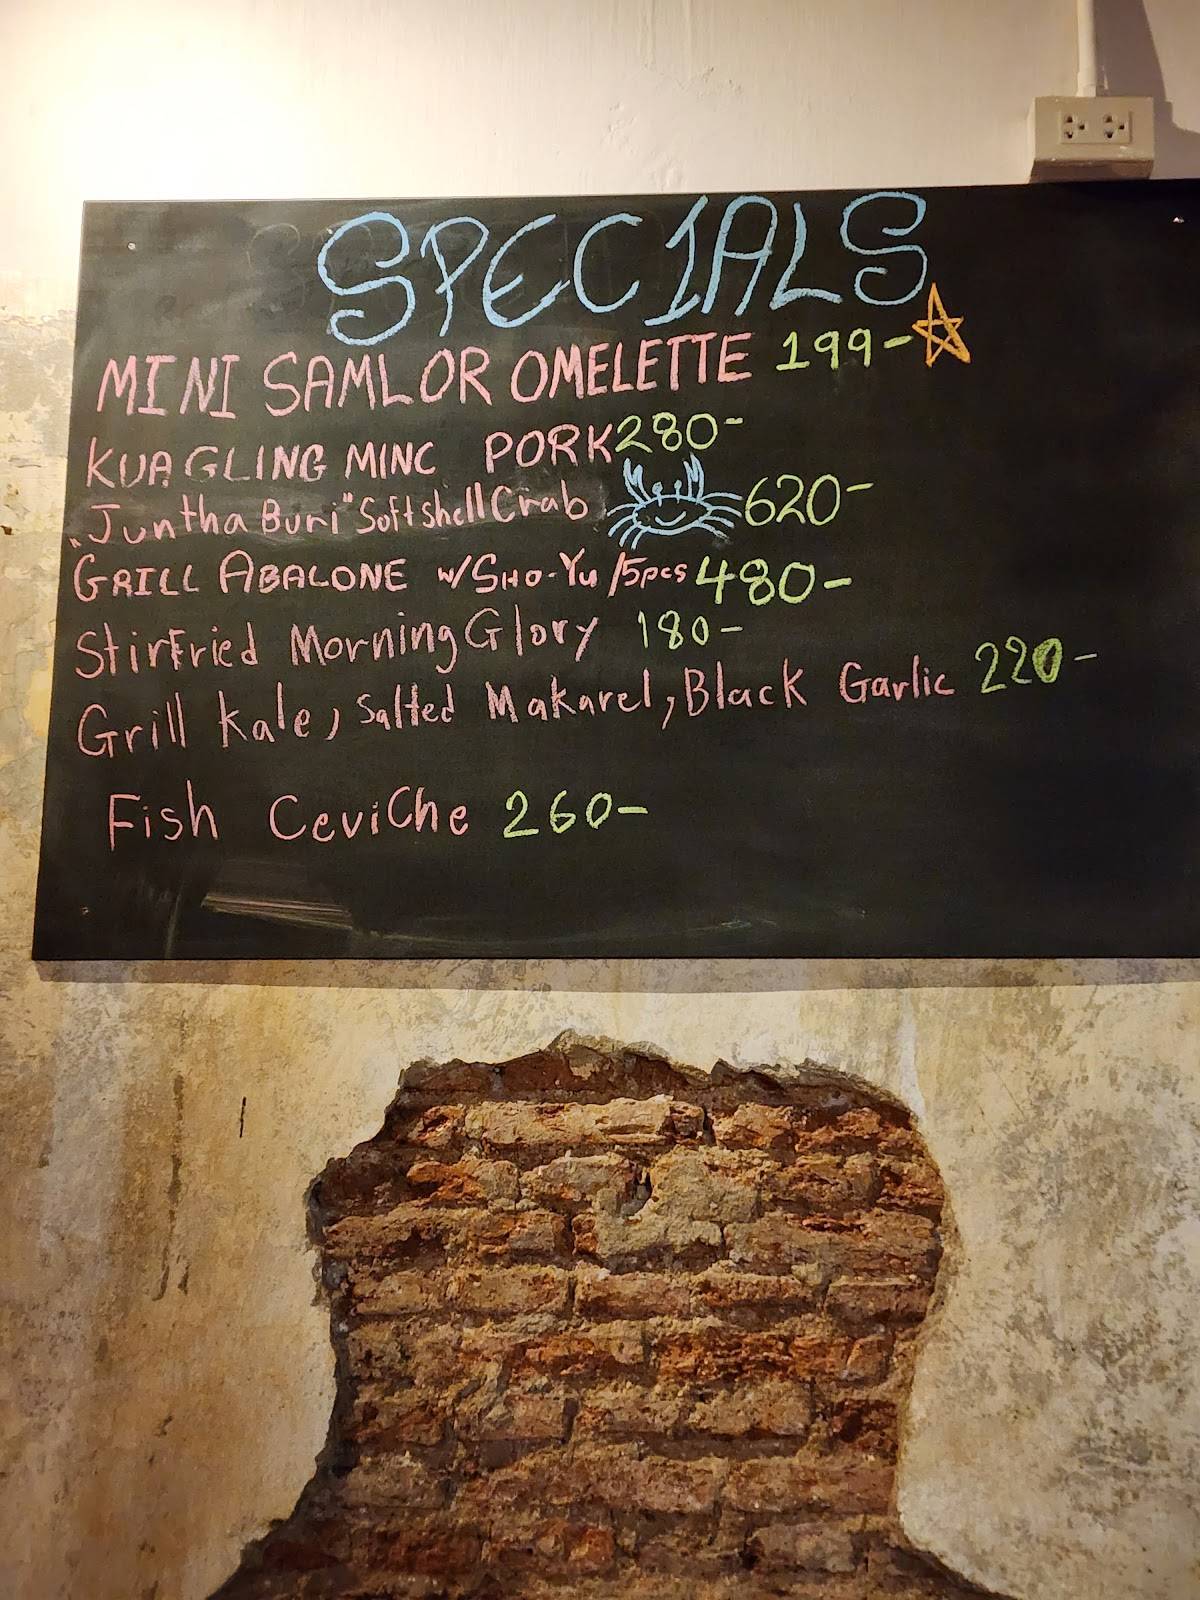 SPECIALS
MINI SAMLOR OMELETTE 199-
KUAGLING MINC PORK 280-
"Juntha Buri" Softshell Crab 620-
GRILL ABALONE w/SHO-YU /5pcs 480-
StirFried Morning Glory 180-
Grill Kale, Salted Makarel, Black Garlic 220-
Fish Ceviche 260-